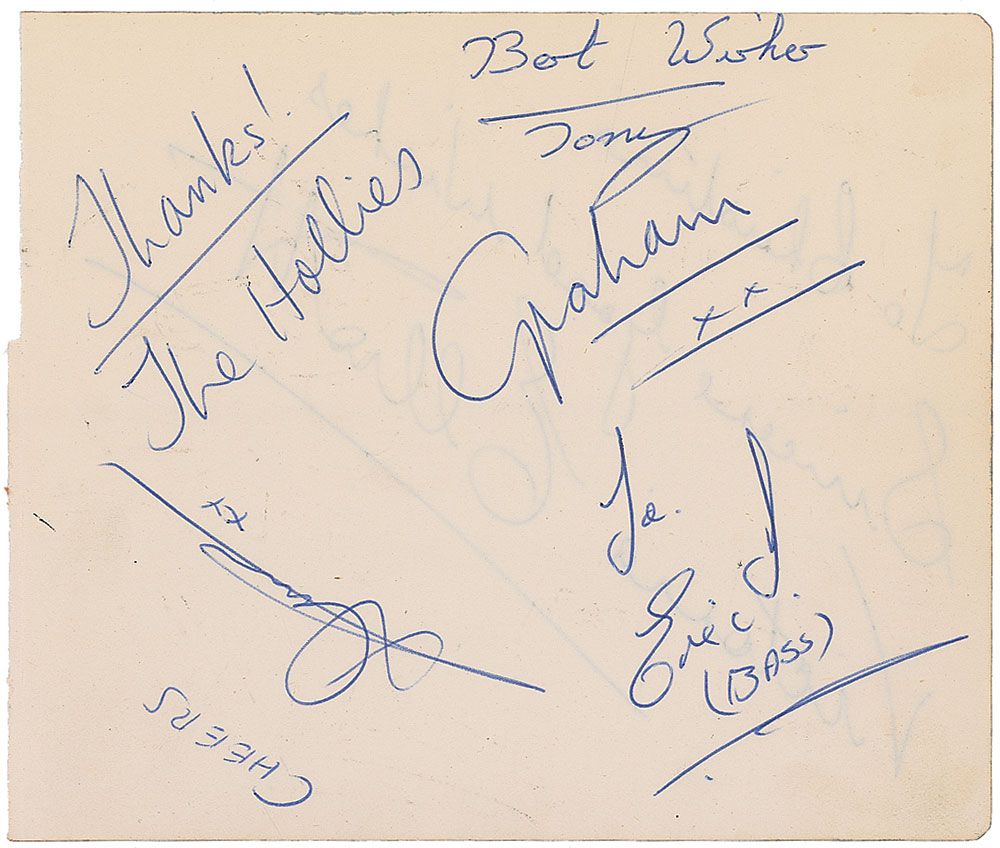 Best Wishes
Tony
Thanks!
The Hollies
Graham
xx
To.
Eric
(BASS)
xx
CHEERS